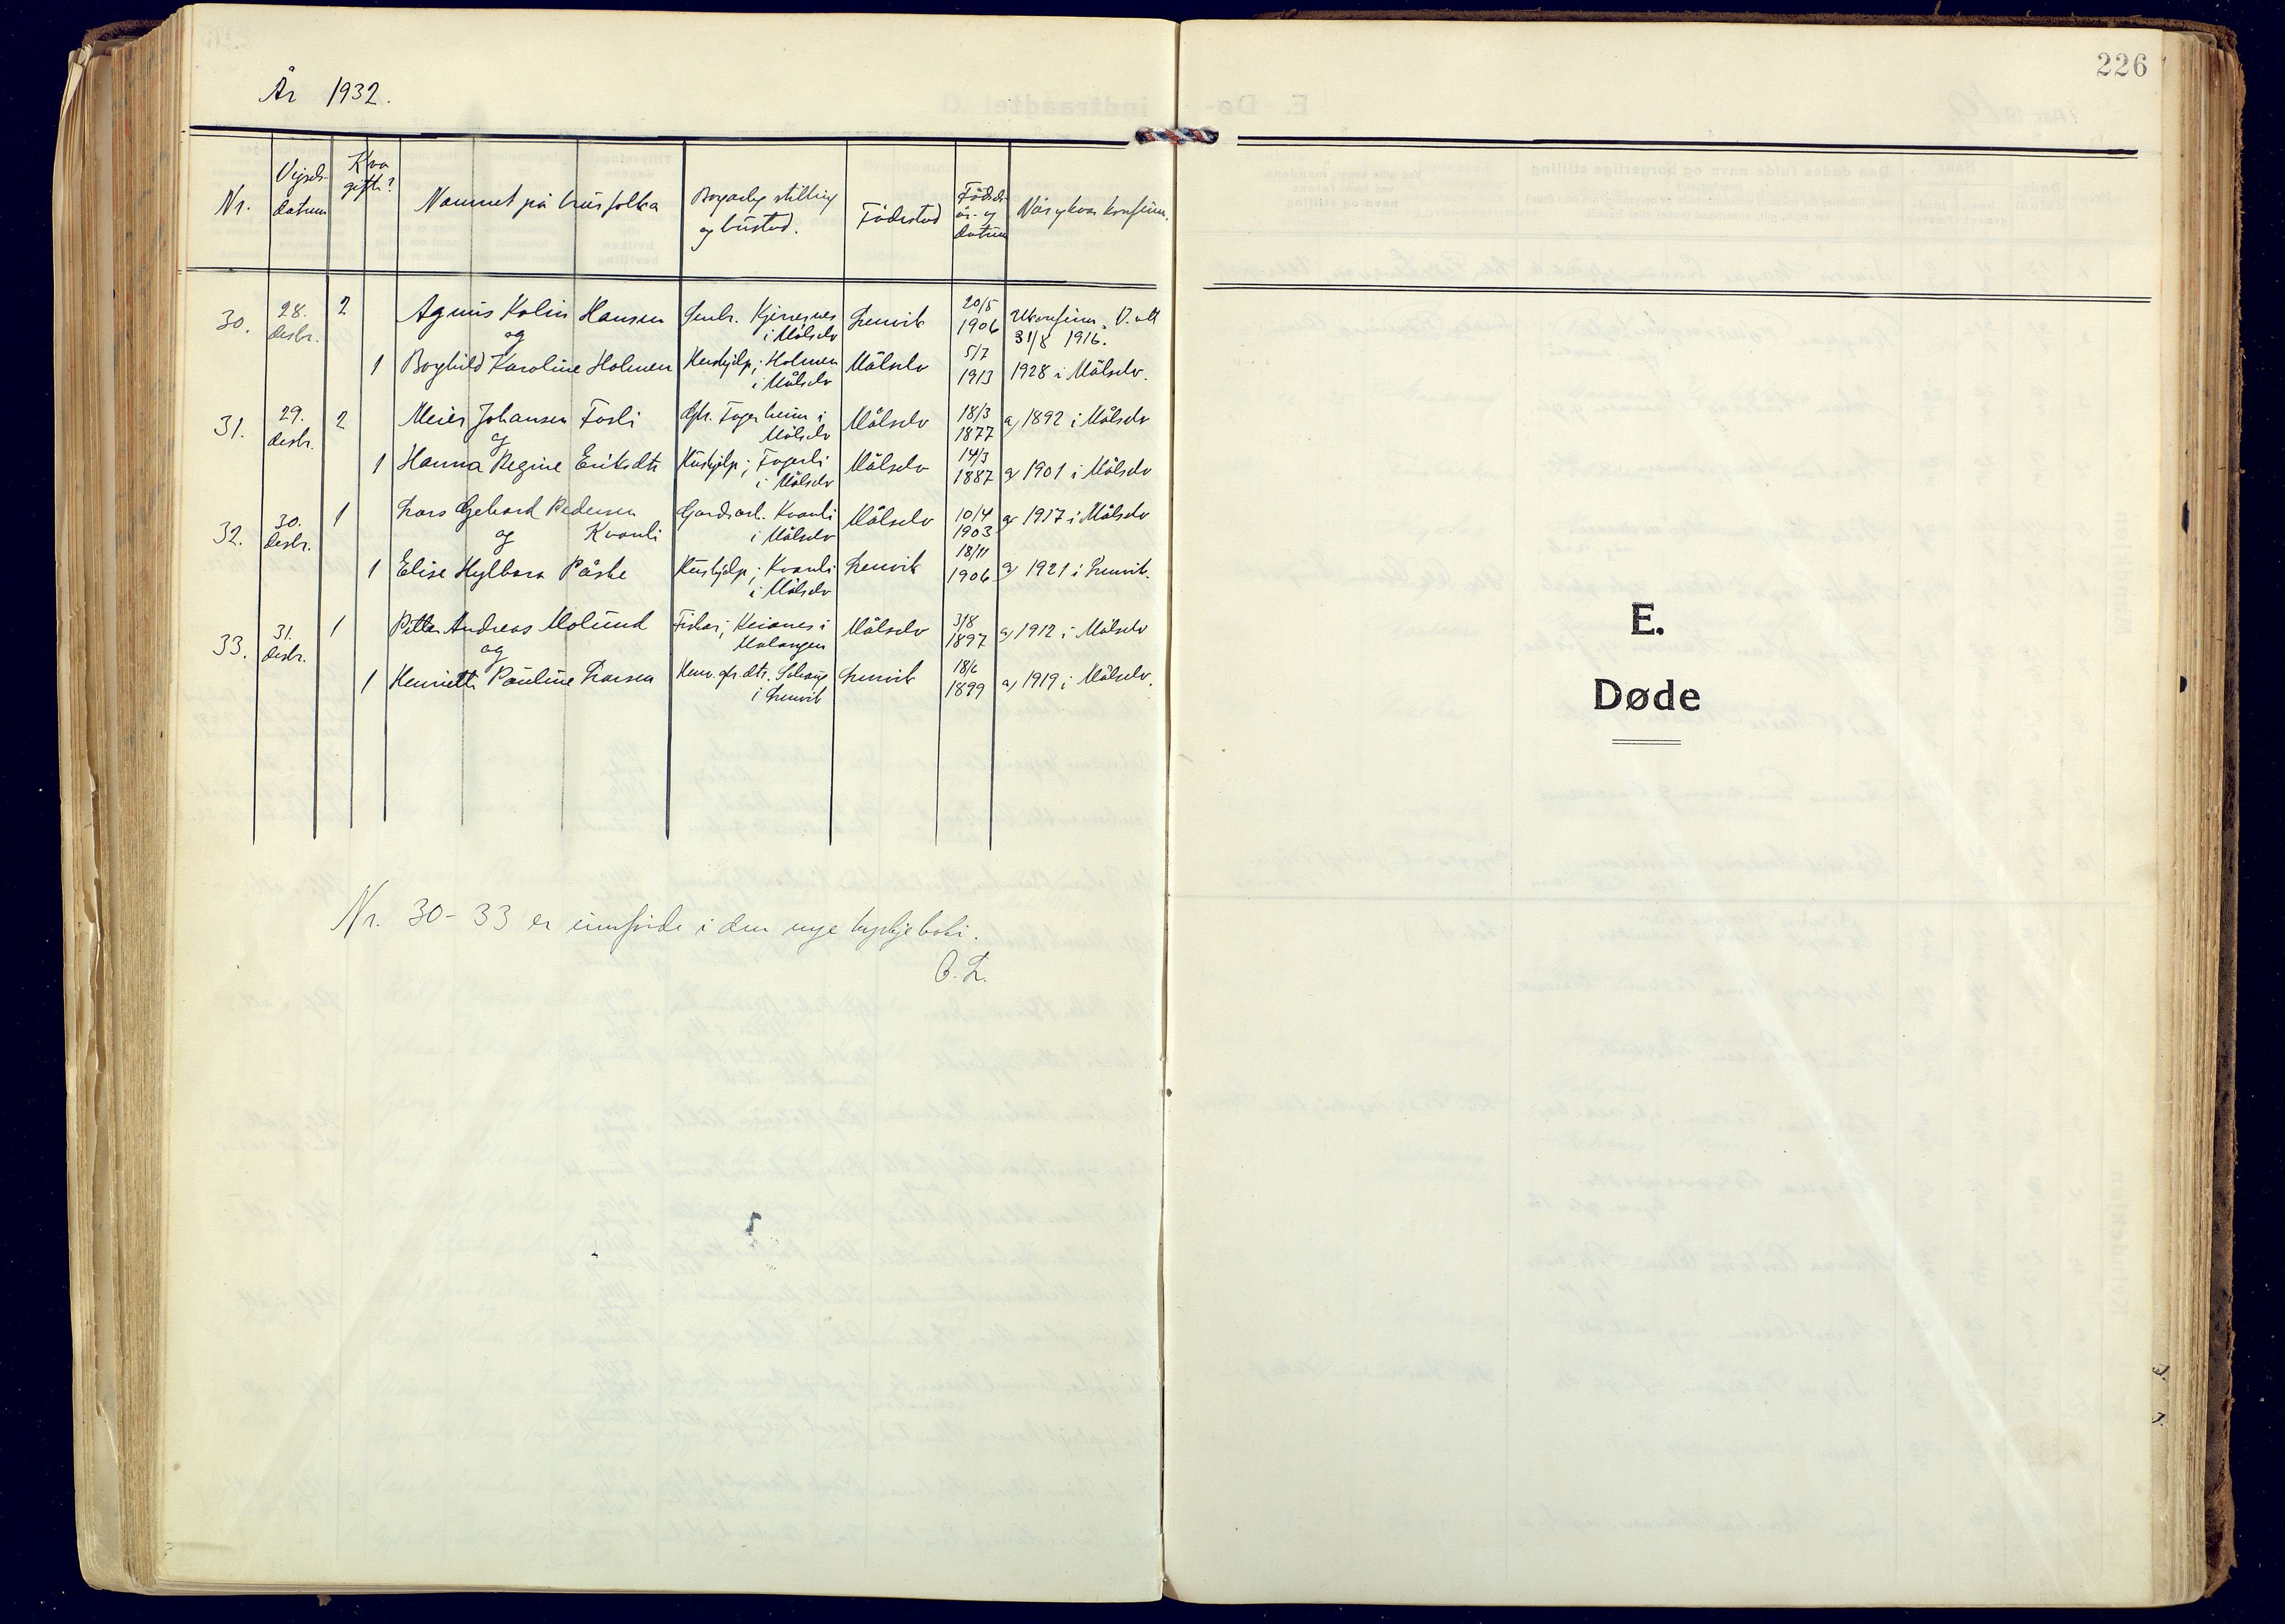 År 1932.
Nr. Vigsels- datum Kva gifte? Namnet på brúrfolka Borgarleg stilling og bústad. Fødestad Fødsels- år- og datum Når og kvar konfirm.
30. 28. desbr. 2 Agnus Kolin Hansen Gmbr. Kjerresnes i Målselv Lenvik 20/5 1906 Ukonfirm. V. att 31/8 1916.
og
1 Borghild Karoline Holmen Hushjelp; Holmen i Målselv Målselv 5/7 1913 1928 i Målselv.
31. 29. desbr. 2 Meier Johansen Fosli Gbr. Fagerheim i Målselv Målselv 18/3 1877 1892 i Målselv
og
1 Hanna Regine Eriksdtr Hushjelp; Fagerli i Målselv Målselv 14/3 1887 1901 i Målselv
32. 30. desbr. 1 Lars Gebard Pedersen Kvanli Gardsarb. Kvanli i Målselv Målselv 10/4 1903 1917 i Målselv
og
1 Elise Hylbora Påske Hushjelp; Kvanli i Målselv Lenvik 18/11 1906 1921 i Lenvik.
33. 31. desbr. 1 Petter Andreas Molund Fiskar; i Malangen Målselv 3/8 1897 1912 i Målselv
og
1 Henriette Pauline Larsen gbr.dtr. i Lenvik Lenvik 18/6 1899 1919 i Målselv.
Nr. 30-33 er innförde i den nye kyrkjeboki.
O. L.
226
E.
Døde